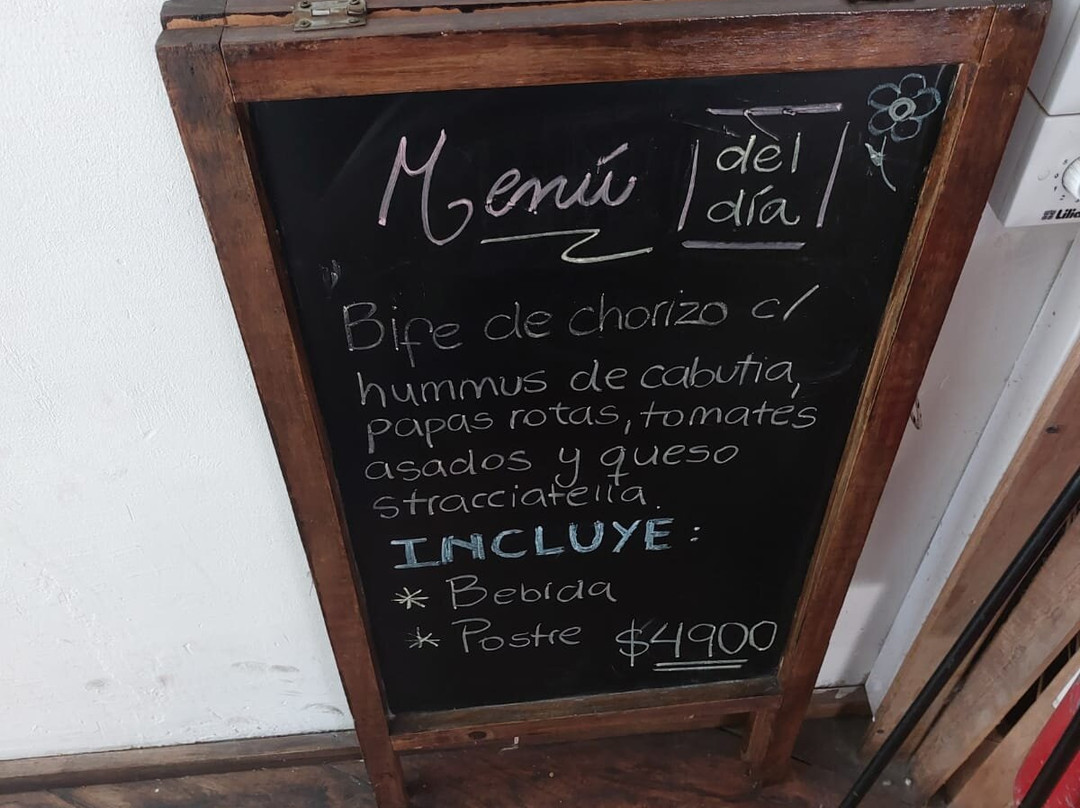 Menú del día
Bife de chorizo c/
hummus de cabutia,
papas rotas, tomates
asados y queso
stracciatella.
INCLUYE:
* Bebida
* Postre $4900